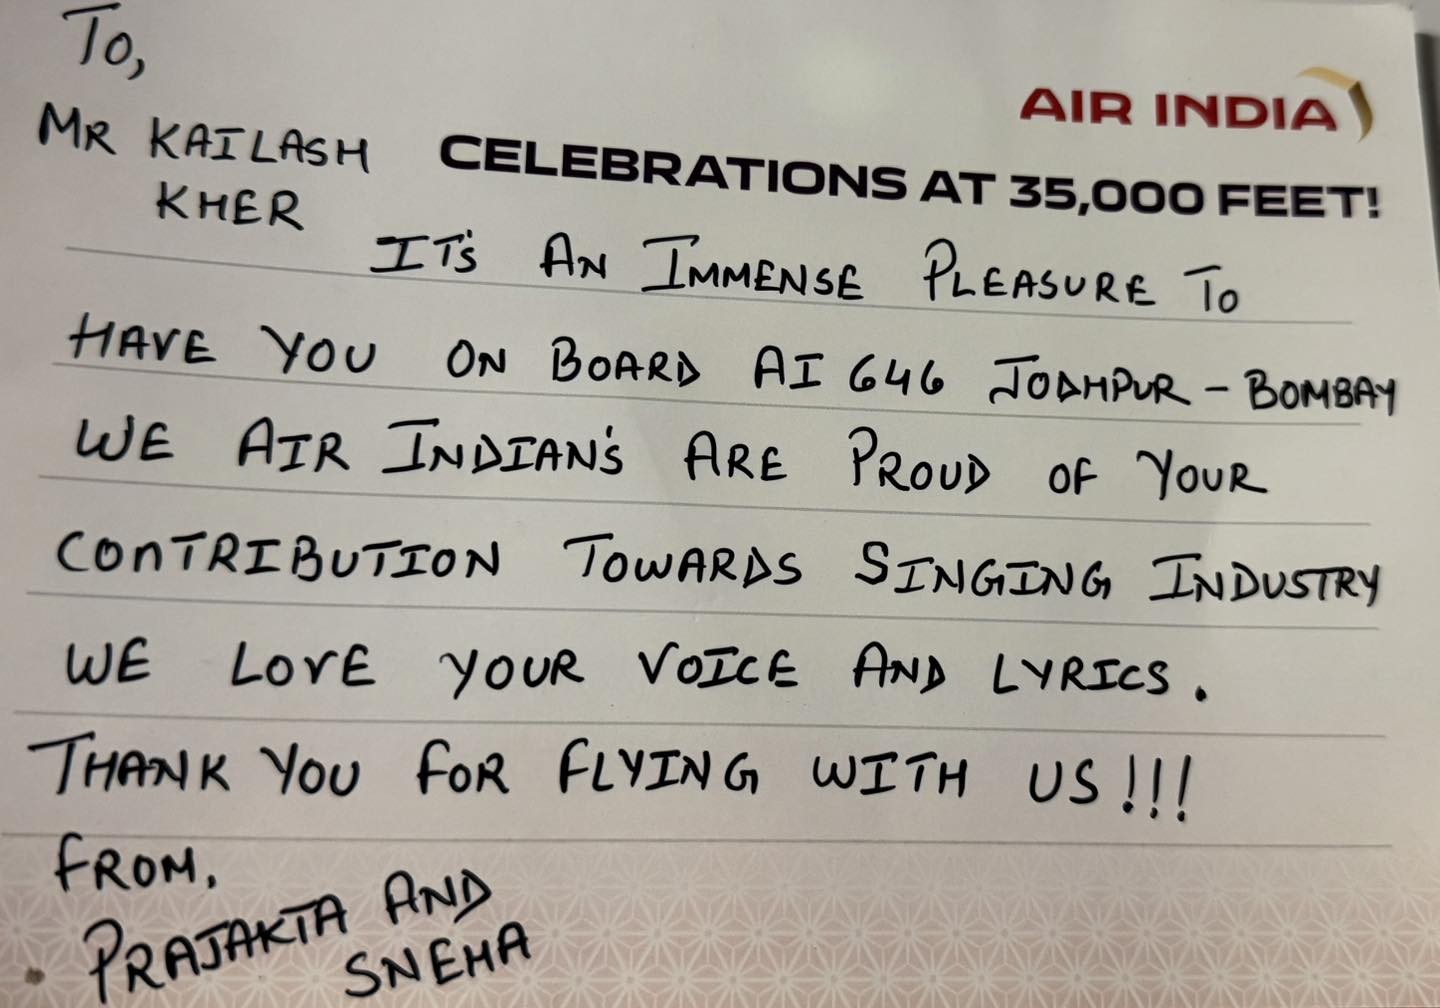 To,
MR KAILASH
KHER
AIR INDIA
CELEBRATIONS AT 35,000 FEET!
IT'S AN IMMENSE PLEASURE TO
HAVE YOU ON BOARD AI 646 JODHPUR - BOMBAY
WE AIR INDIAN'S ARE PROUD OF YOUR
CONTRIBUTION TOWARDS SINGING INDUSTRY
WE LOVE YOUR VOICE AND LYRICS.
THANK YOU FOR FLYING WITH US!!!
FROM,
PRAJAKTA AND
SNEHA